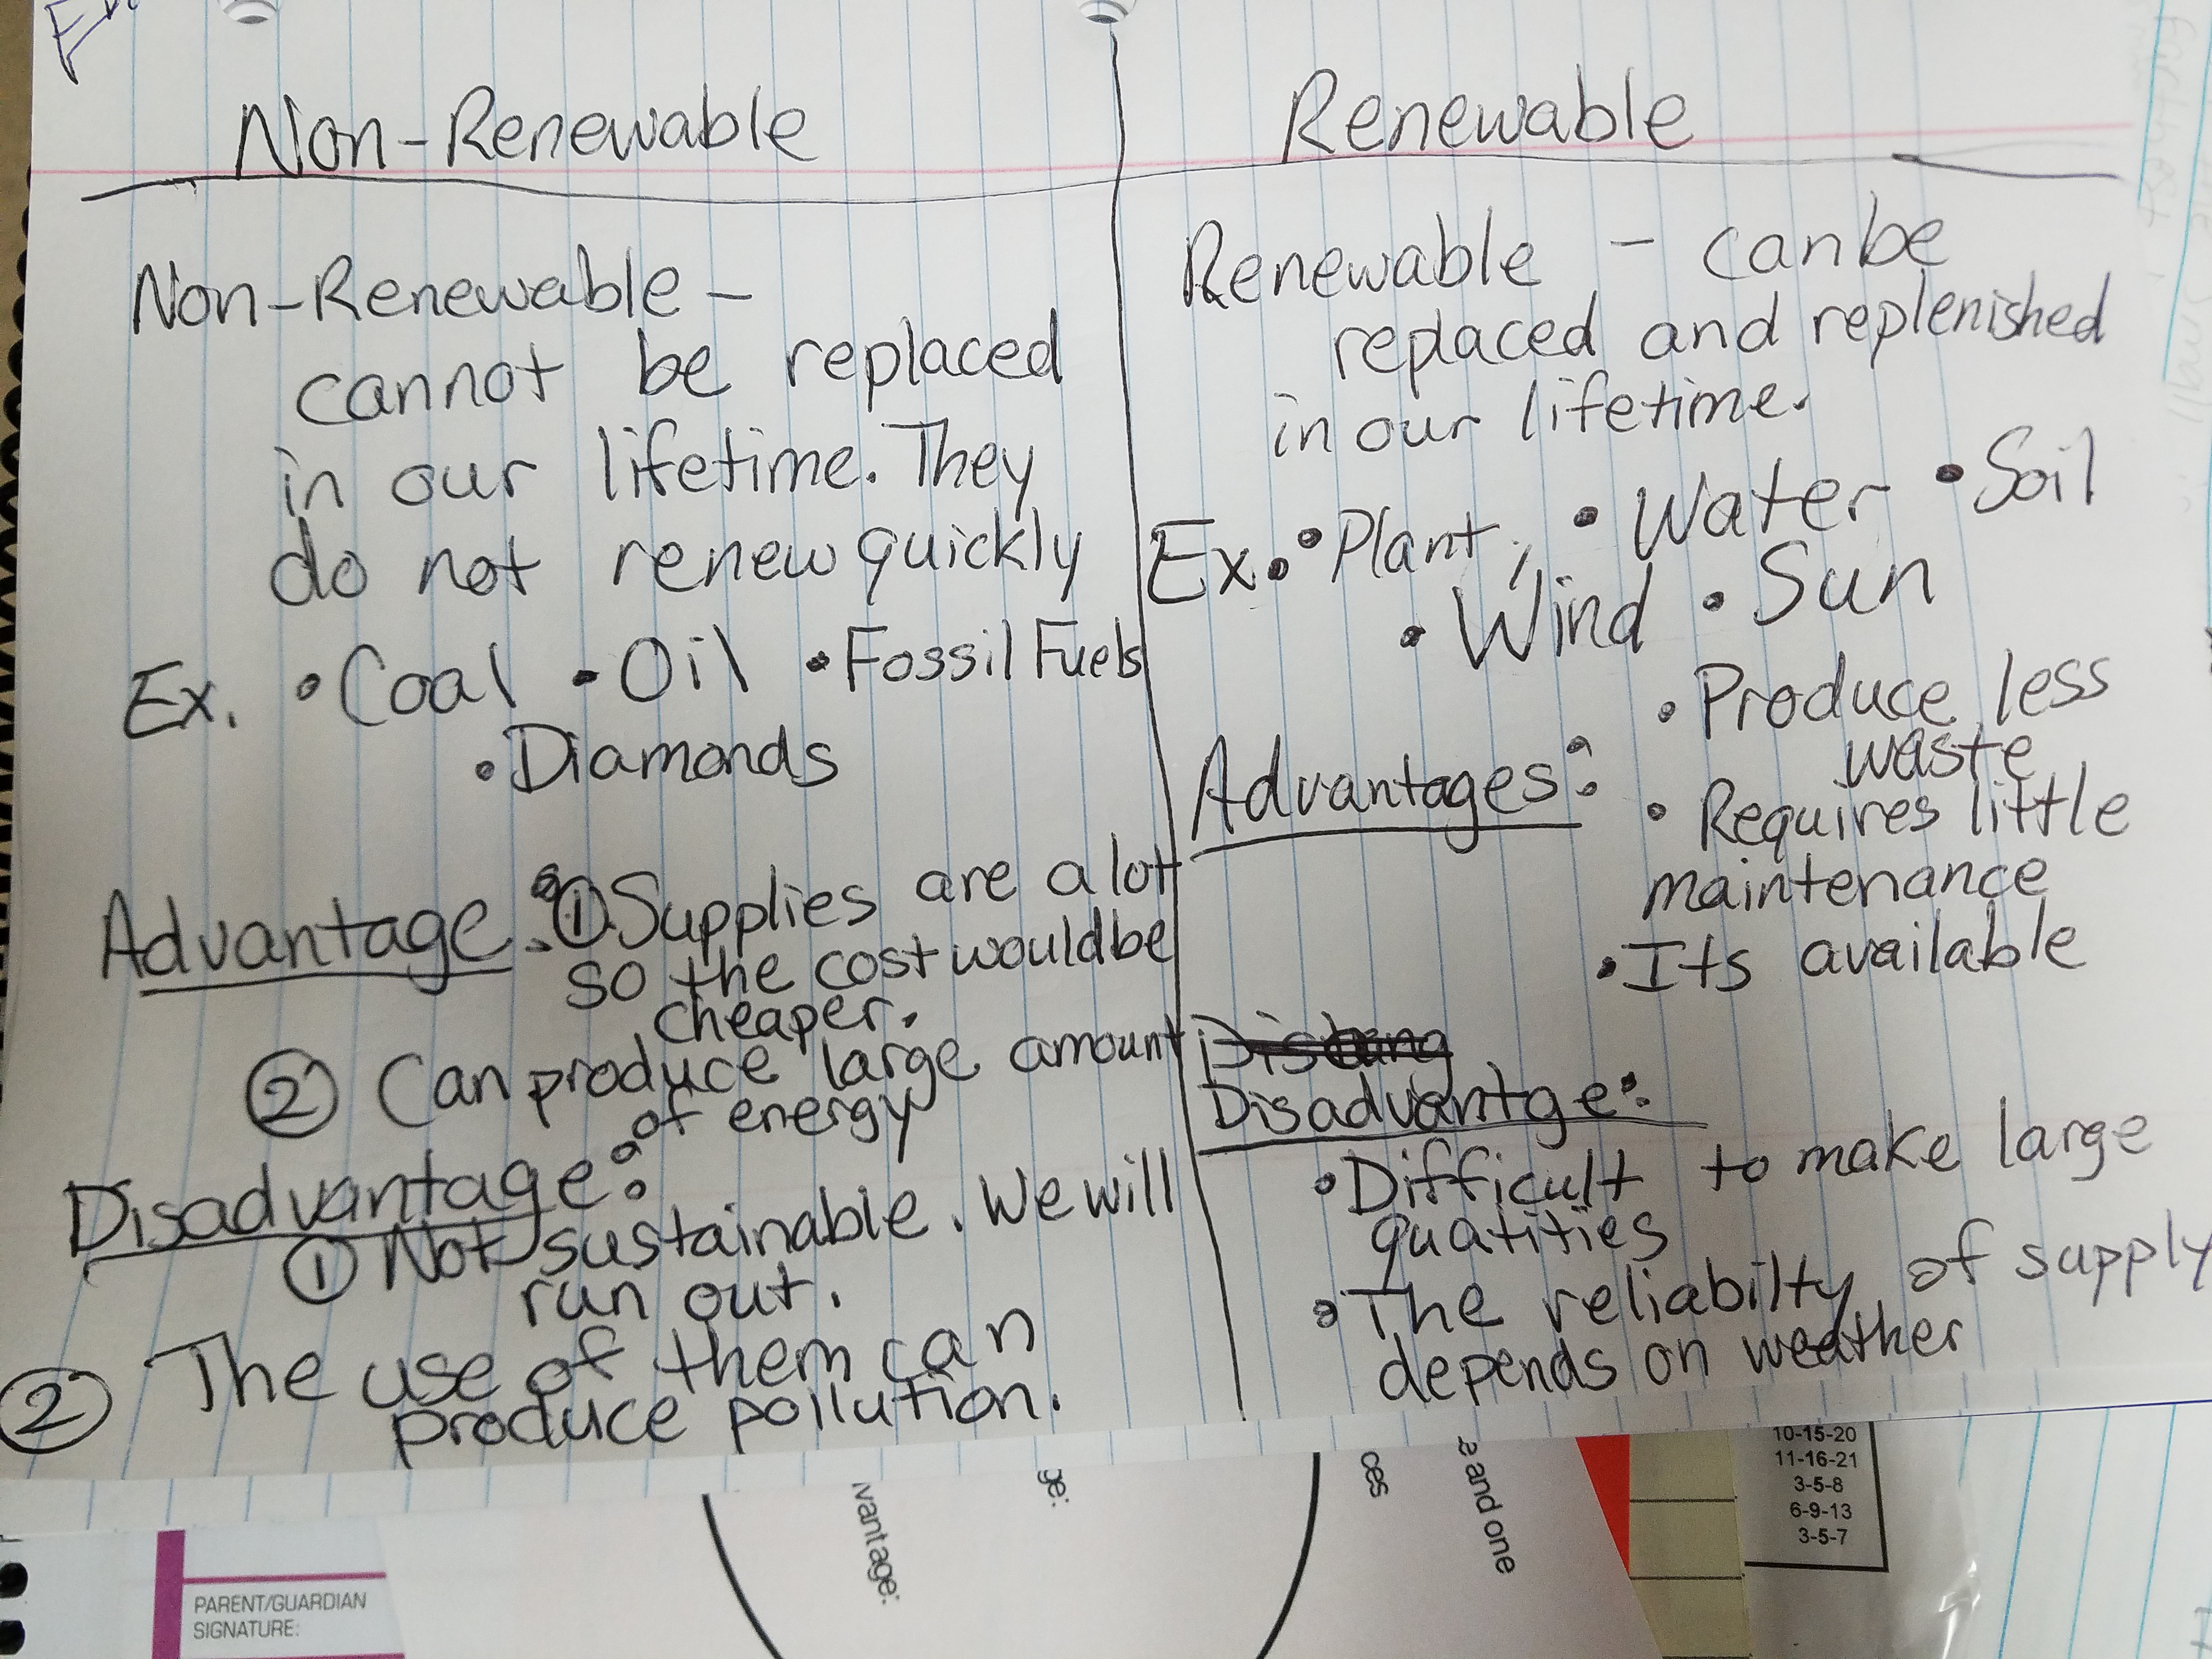 Non-Renewable
Non-Renewable -
cannot be replaced
in our lifetime. They
do not renew quickly
Ex. • Coal • Oil • Fossil Fuels
• Diamonds
Advantage: ① Supplies are a lot
so the cost would be
cheaper.
② Can produce large amount
of energy
Disadvantage:
① Not sustainable. We will
run out.
② The use of them can
produce pollution.
Renewable
Renewable - can be
replaced and replenished
in our lifetime.
Ex. • Plant, • Water • Soil
• Wind • Sun
Advantages: • Produce less
waste
• Requires little
maintenance
• Its available
Disadvantge:
• Difficult to make large
quatities
• The reliabilty of supply
depends on weather
10-15-20
11-16-21
3-5-8
6-9-13
3-5-7
ge:
vantage:
ces
e and one
PARENT/GUARDIAN
SIGNATURE: